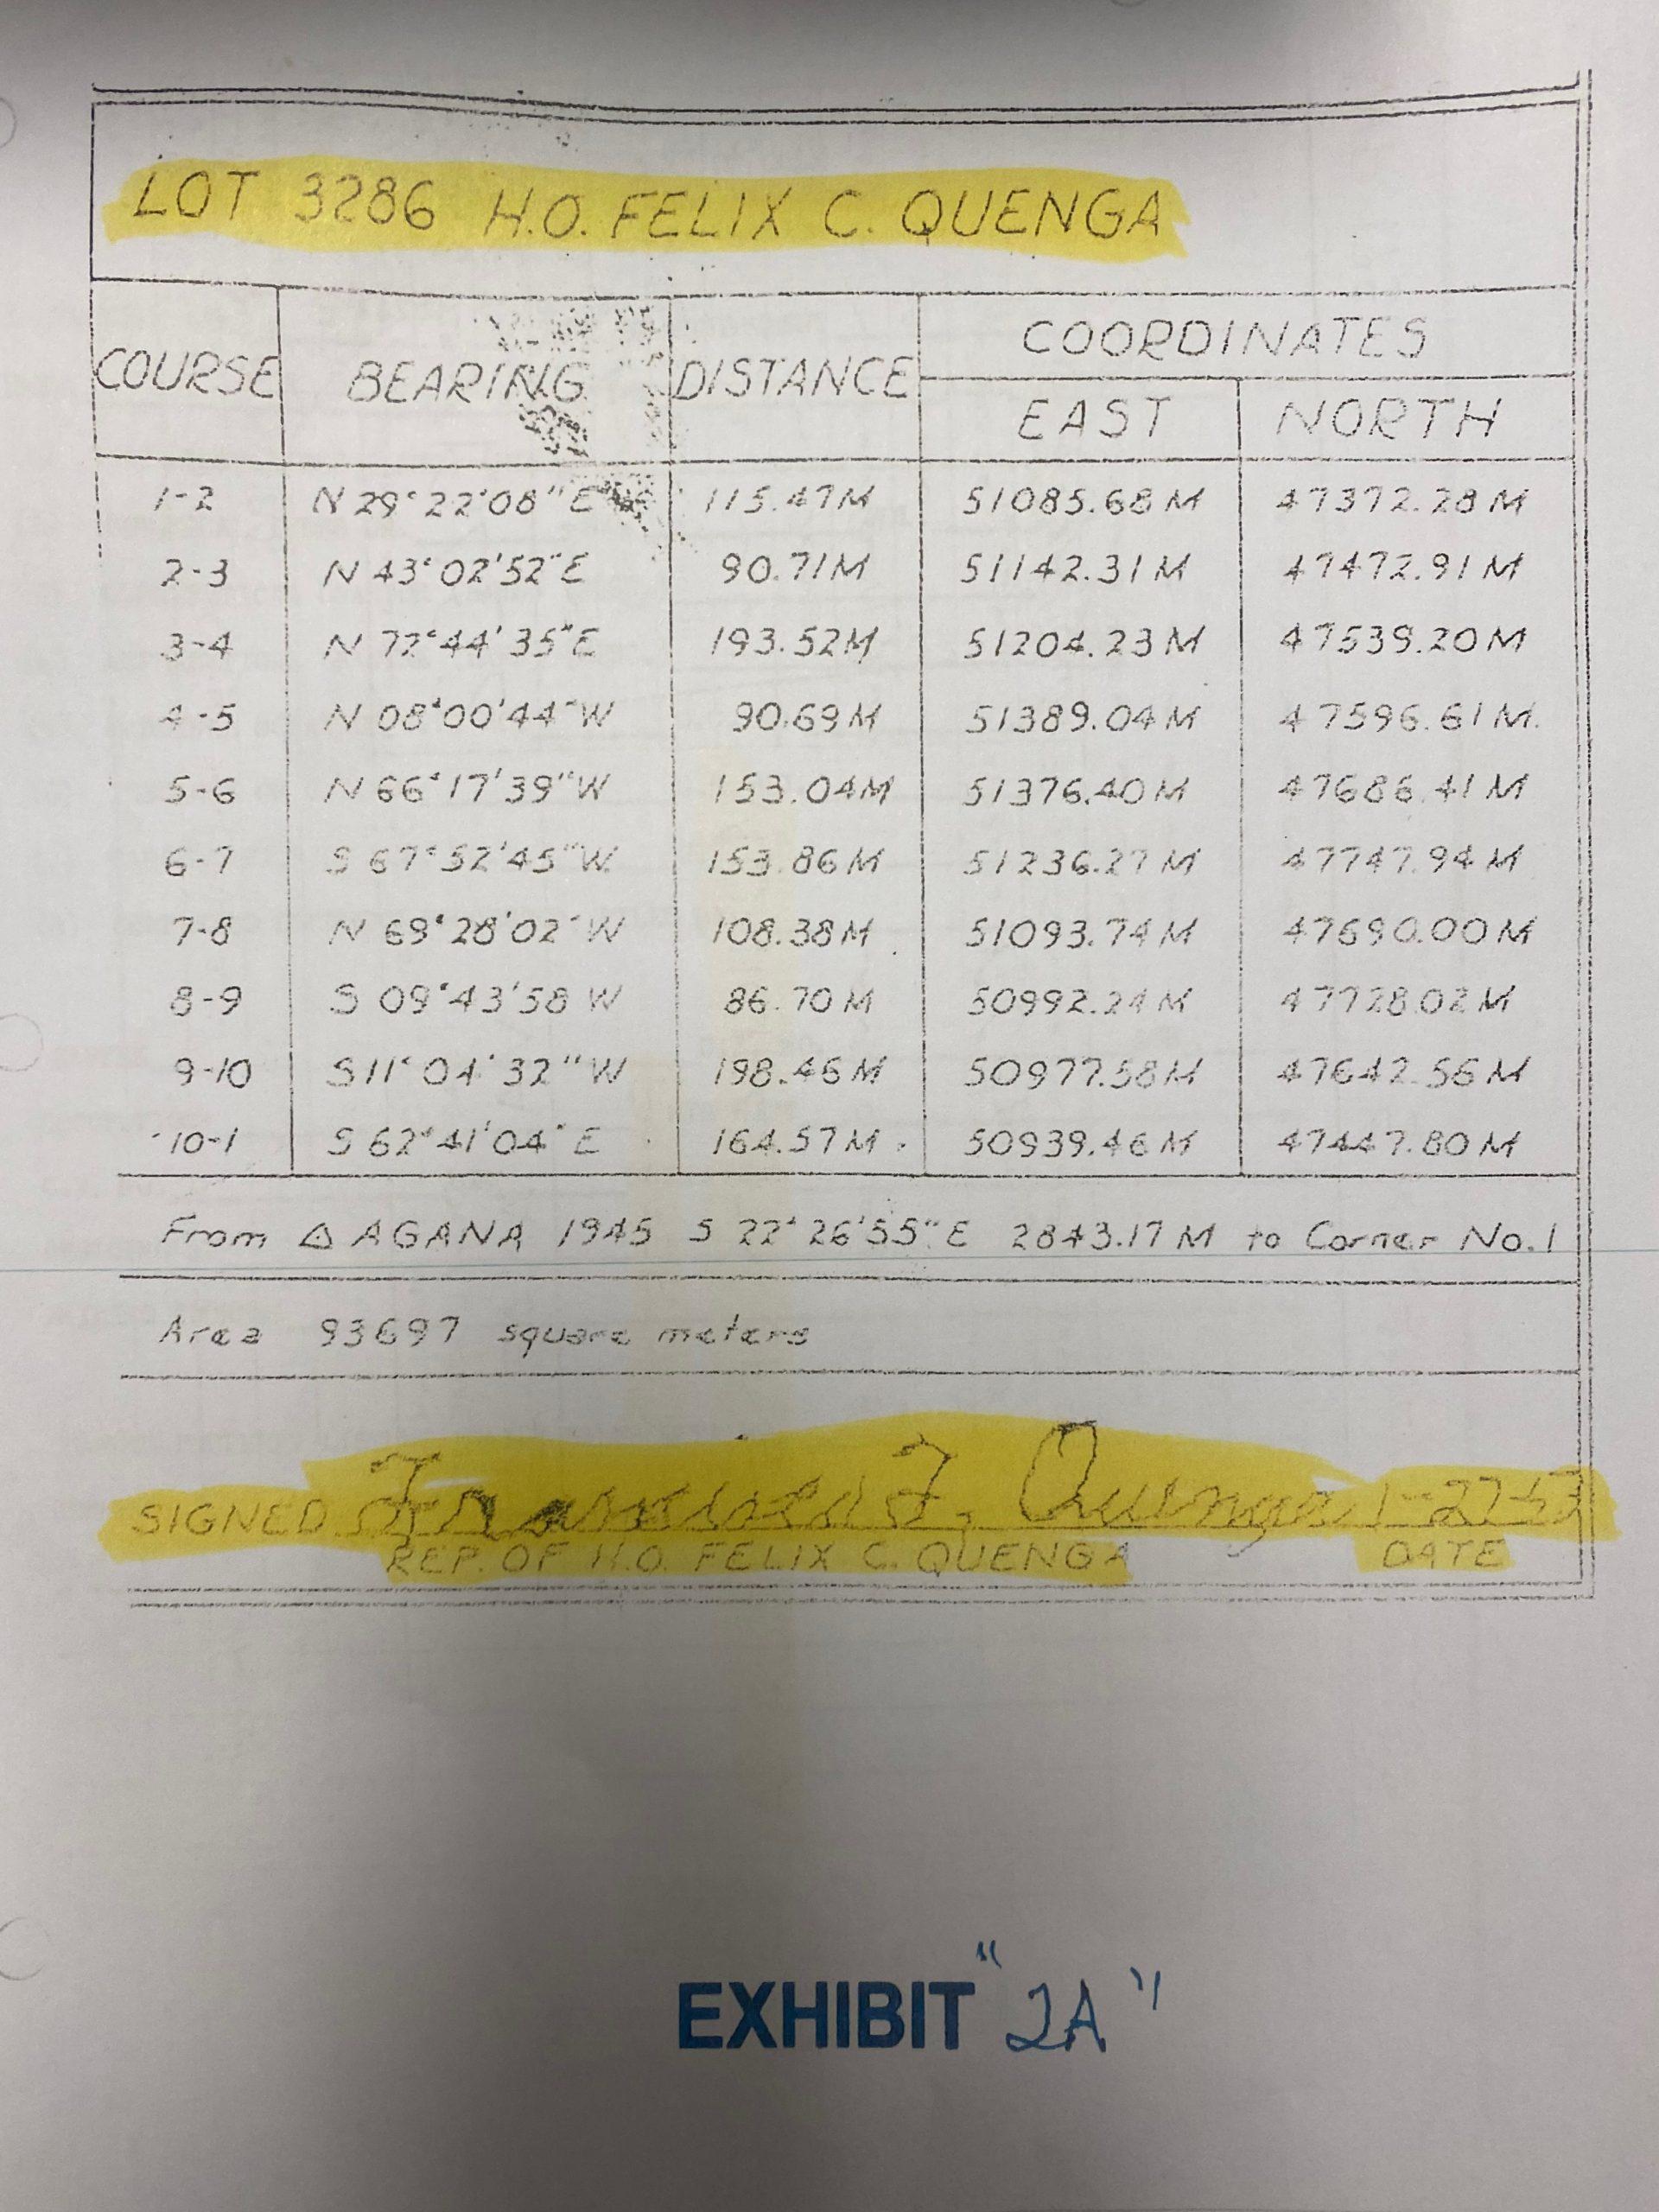 LOT 3286 H.O. FELIX C. QUENGA
COURSE BEARING DISTANCE COORDINATES
EAST NORTH
1-2 N 29°22'08" E 115.47M 51085.68 M 47372.28 M
2-3 N 43°02'52" E 90.71M 51142.31 M 47472.91 M
3-4 N 72°44'35" E 193.52M 51204.23 M 47539.20 M
4-5 N 08°00'44" W 90.69 M 51389.04 M 47596.61 M.
5-6 N 66°17'39" W 153.04M 51376.40 M 47686.41 M
6-7 S 67°52'45" W. 153.86 M 51236.27 M 47747.94 M
7-8 N 69°28'02" W 108.38 M 51093.74 M 47690.00 M
8-9 S 09°43'58 W 86.70 M 50992.24 M 47728.02 M
9-10 S 11°04'32" W 198.46 M 50977.58 M 47642.56 M
10-1 S 62°41'04" E 164.57 M. 50939.46 M 47447.80 M
From △ AGANA 1945 S 22°26'55" E 2843.17 M to Corner No. 1
Area 93697 square meters
SIGNED Quenga
REP. OF H.O. FELIX C. QUENGA DATE
EXHIBIT "2A"